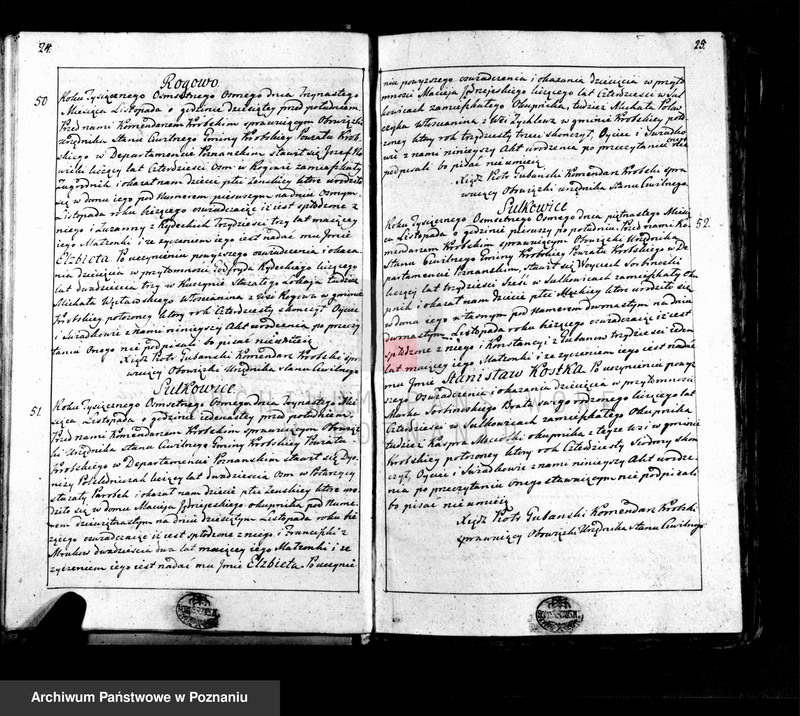 24.
Rogowo
50
Roku Tysiącznego Osmsetnego Osmego dnia Trzynastego
Miesiąca Listopada o godzinie dziesiątey przed południem
Przed nami Komendarzem Krobskim sprawuiącym Obowiązki
Urzędnika Stanu Cywilnego Gminy Krobskiey Powiatu Krob-
skiego w Departamencie Poznanskim Stawił się Jozef
liczący lat Czterdziesci Osm w Rogowie zamieszkały
Zagrodnik i okazał nam dziecie płci zenskiey ktore urodziło
się w domu iego pod Numerem pierwszym na dniu Osmym
Listopada roku biezącego oswiadczaiąc iż iest spłodzone z
niego i Zuzanny z Kędzich trzydziesci trzy lat maiącey
iego Małzonki i ze zyczeniem iego iest nadać mu Jmie
Elzbieta Po uczynieniu powyzszego oswiadczenia i okaza-
nia dziecięcia w przytomności liczącego
lat dwadziescia trzy w tudziesz
Michała włoscianina z Wsi Rogowa w gminie
Krobskiey połozoney ktory rok Czterdziesty skonczył. Oyciec
i Swiadkowie z nami ninieyszy Akt urodzenia po przeczy-
taniu Onego nie podpisali bo pisać nie umieią
Xiądz Piotr Gubanski Komendarz Krobski spra-
wuiący Obowiązki Urzędnika Stanu Cywilnego
Sułkowice
51.
Roku Tysiącznego Osmsetnego Osmego dnia Trzynastego Mie-
siąca Listopada o godzinie iedenastey przed południem
Przed nami Komendarzem Krobskim sprawuiącym Obowiąz-
ki Urzędnika Stanu Cywilnego Gminy Krobskiey Powiatu
Krobskiego w Departamencie Poznanskim stawił się
liczący lat dwadziescia Osm w
Parobek i okazał nam dziecie płci zenskiey ktore uro-
dziło się w domu Macieja Jędrzejeskiego okupnika pod Nume-
rem dziewiętnastym na dniu dziesiątym Listopada roku bie-
zącego oswiadczaiąc iż iest spłodzone z niego i Franciszki z
dwadziescia dwa lat maiącey iego Małzonki i ze
zyczeniem iego iest nadać mu Jmie Elzbieta. Po uczynie-
25.
niu powyzszego oswiadczenia i okazania dziecięcia w przyto-
mnosci Macieja Jędrzejeskiego liczącego lat Czterdziesci w Suł-
kowicach zamieszkałego Okupnika, tudziesz Michała
włoscianina z Wsi Zychlewa w gminie Krobskiey poło-
zoney ktory rok trzydziesty trzeci skonczył, Oyciec i Swiadko-
wie z nami ninieyszy Akt urodzenia po przeczytaniu nie
podpisali bo pisać nie umieią
Xiądz Piotr Gubanski Komendarz Krobski spra-
wuiący Obowiązki urzędnika Stanu Cywilnego
Sułkowice
52.
Roku Tysiącznego Osmsetnego Osmego dnia piętnastego Miesią-
ca Listopada o godzinie pierwszy po południu Przed nami Ko-
mendarzem Krobskim sprawuiącym Obowiązki Urzędnika
Stanu Cywilnego Gminy Krobskiey Powiatu Krobskiego w De-
partamencie Poznanskim, Stawił się Woyciech Sorbinski
liczący lat trzydziesci Szesć w Sułkowicach zamieszkały Oku-
pnik i okazał nam dziecie płci Męskiey ktore urodziło się
w domu iego własnym pod Numerem dwunastym na dniu
dwunastym Listopada roku biezącego oswiadczaiąc iż iest
spłodzone z niego i Konstancyi z Gubanow trzydziesci ieden
lat maiącey iego Małzonki i ze zyczeniem iego iest nadać
mu Jmie Stanisław Kostka Po uczynieniu powy-
szego Oswiadczenia i okazania dziecięcia w przytomności
Marka Sorbinskiego Brata swego rodzonego liczącego lat
Czterdziesci w Sułkowicach zamieszkałego Okupnika
tudziesz Kaspra okupnika z teyze Wsi w gminie
Krobskiey połozoney ktory rok Czterdziesty Siodmy skon-
czył, Oyciec i Swiadkowie z nami ninieyszy Akt urodze-
nia po przeczytaniu Onego stawaiącym nie podpisali
bo pisać nie umieią
Xiądz Piotr Gubanski Komendarz Krobski
sprawuiący Obowiązki Urzędnika Stanu Cywilnego
Archiwum Państwowe w Poznaniu